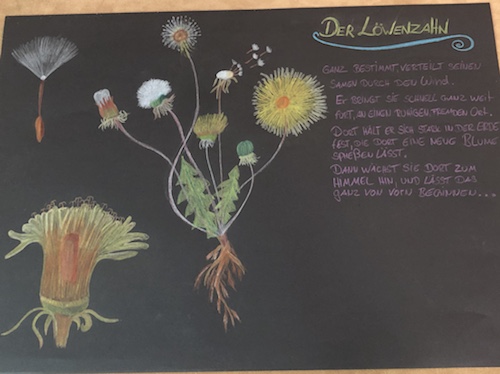 DER LÖWENZAHN
GANZ BESTIMMT, VERTEILT SEINEN
SAMEN DURCH DEN WIND.
ER BRINGT SIE SCHNELL GANZ WEIT
FORT, AN EINEN RUHIGEN, FREMDEN ORT.
DORT HÄLT ER SICH STARK IN DER ERDE
FEST, DIE DORT EINE NEUE BLUME
SPRIEßEN LÄSST.
DANN WÄCHST SIE DORT ZUM
HIMMEL HIN, UND LÄSST DAS
GANZ VON VORN BEGINNEN...